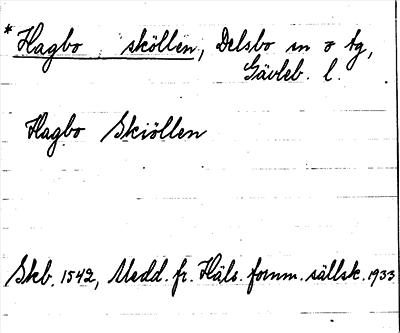 *Hagbo sköllen, Delsbo sn o tg,
Gävleb. l.
Hagbo Skiöllen
Skb. 1542, Medd. fr. Häls. fornm. sällsk. 1933